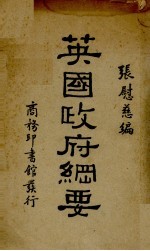 張慰慈編
英國政府綱要
商務印書館發行